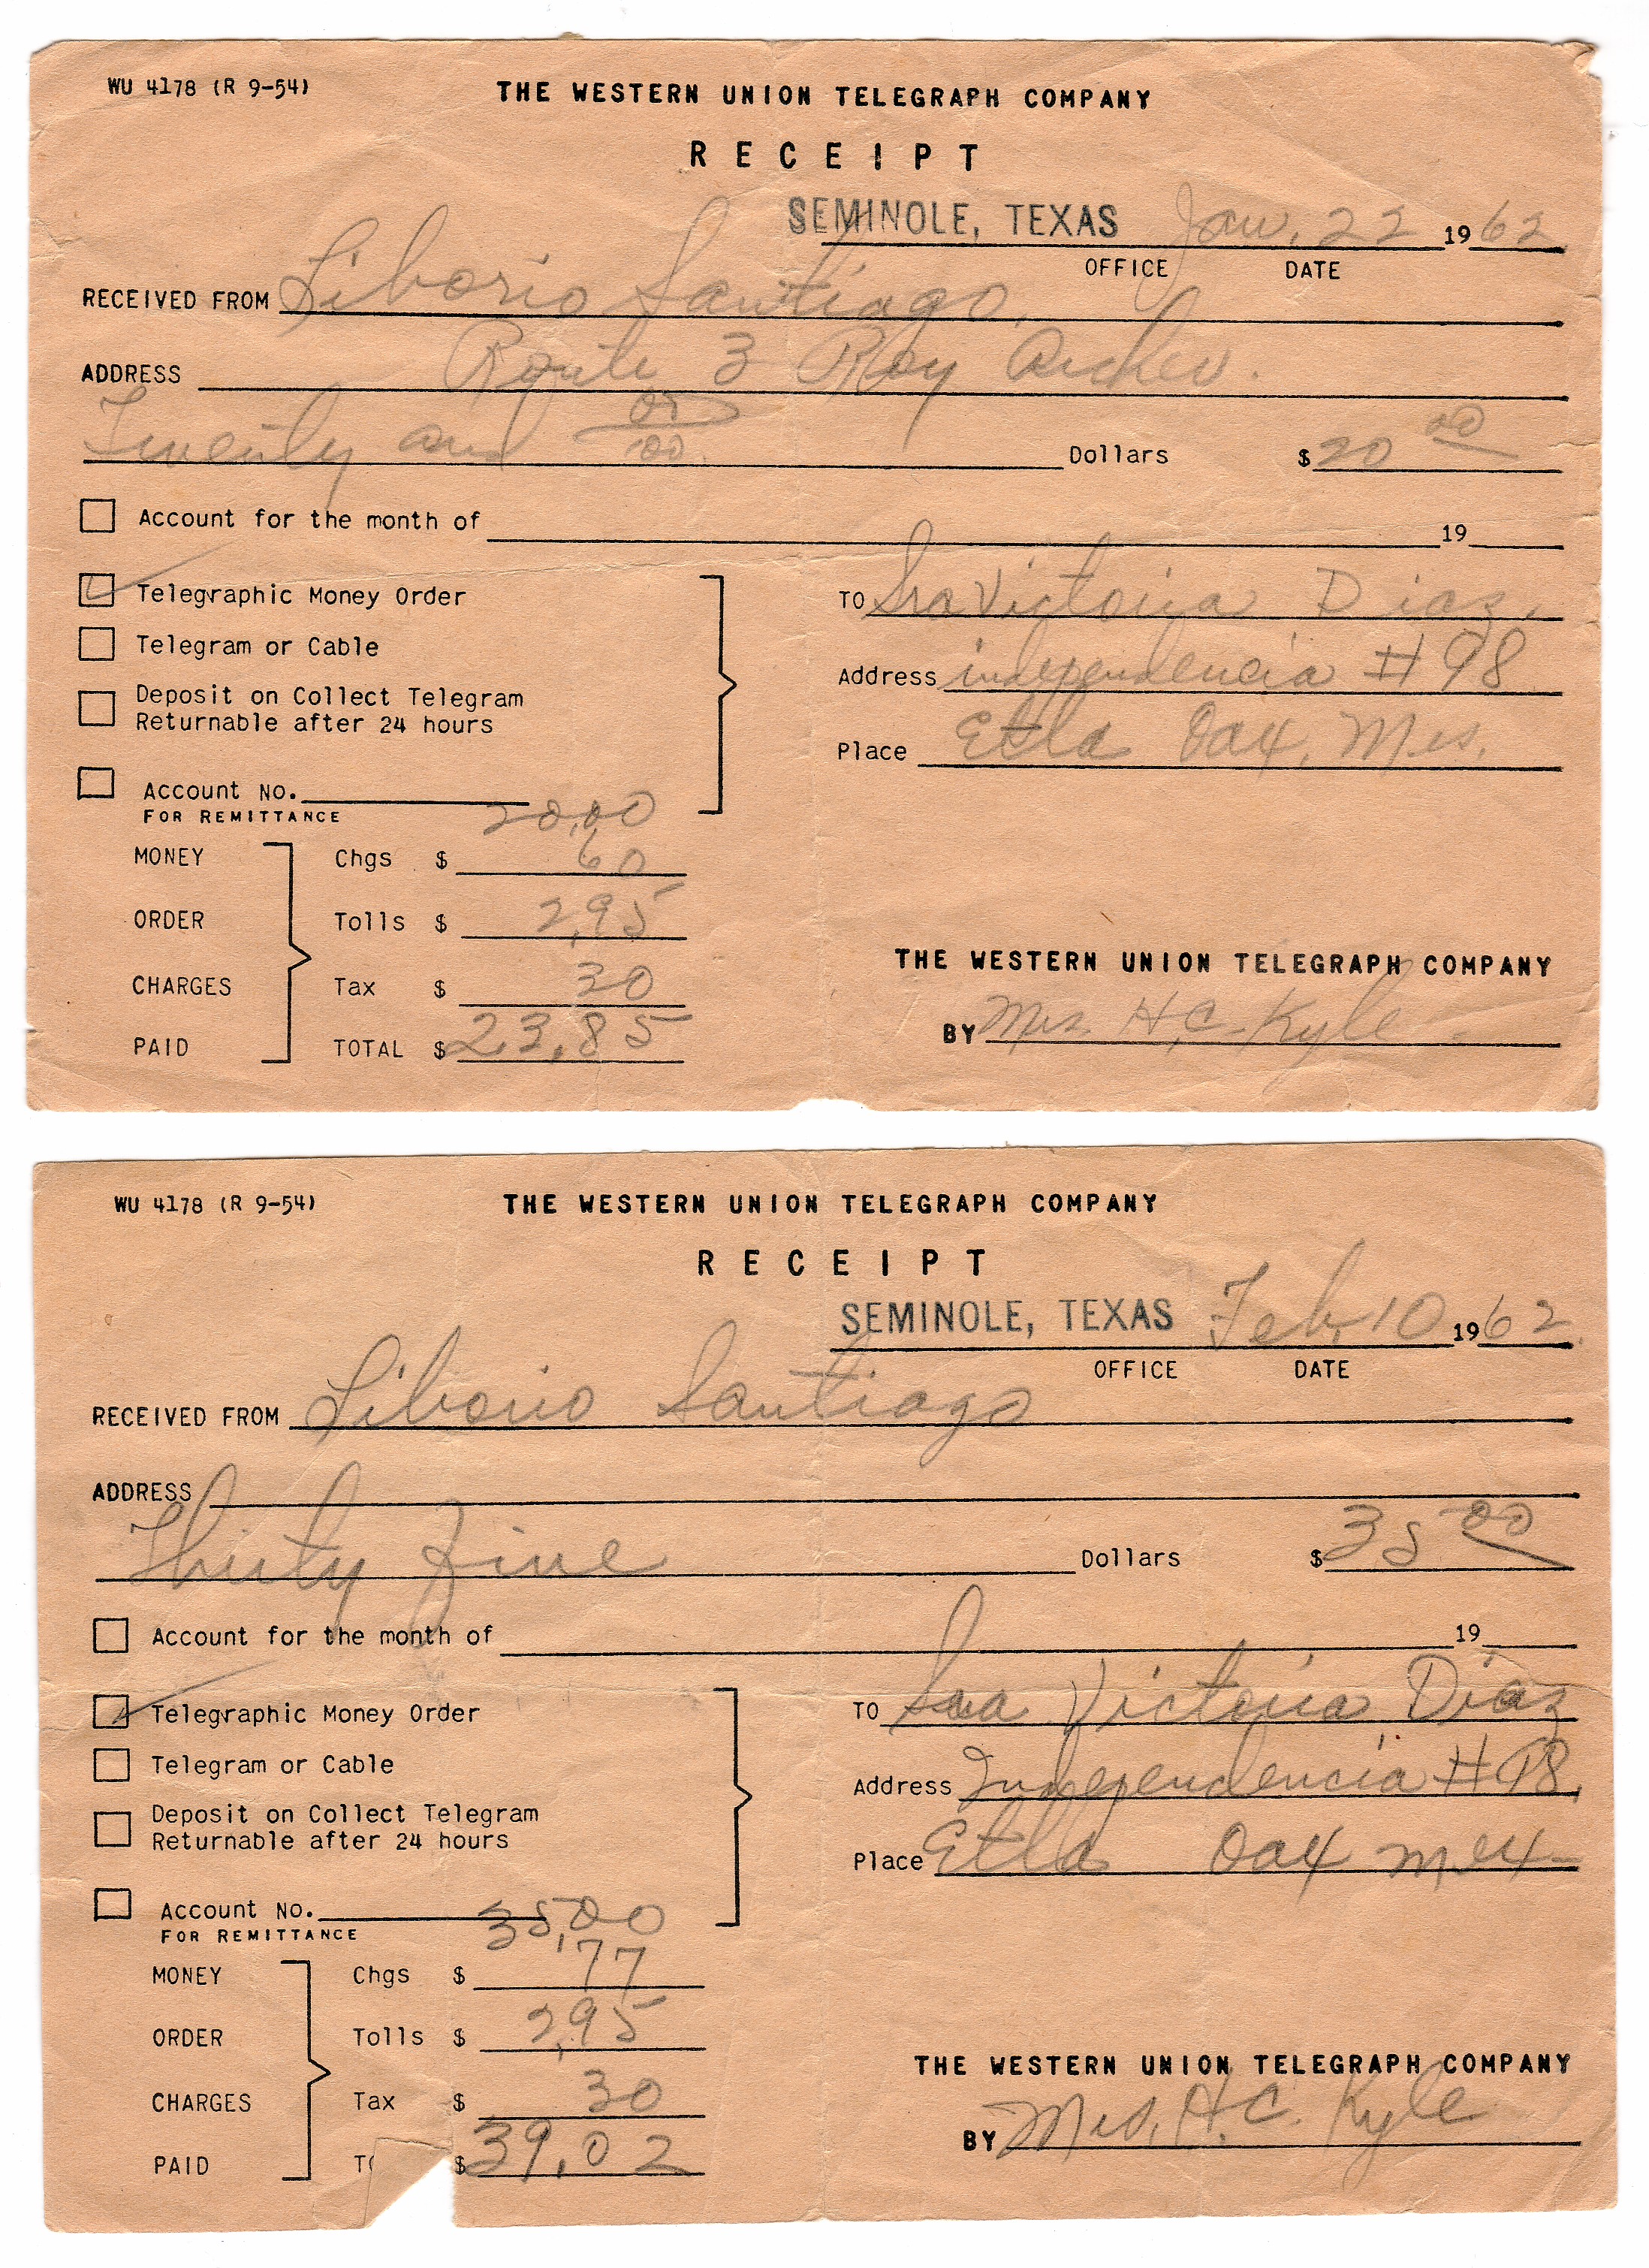 WU 4178 (R 9-54)
THE WESTERN UNION TELEGRAPH COMPANY
RECEIPT
SEMINOLE, TEXAS Jan, 22 1962
OFFICE DATE
RECEIVED FROM Liborio Santiago,
ADDRESS Route 3 Roy Archer.
Twenty and 00/100 Dollars $20 00
Account for the month of 19
Telegraphic Money Order
Telegram or Cable
Deposit on Collect Telegram
Returnable after 24 hours
Account No.
FOR REMITTANCE
TO Sra Victoria Diaz,
Address independencia # 98
Place Etla Oax, Mex.
20,00
MONEY Chgs $ 60
ORDER Tolls $ 2,95
CHARGES Tax $ 30
PAID TOTAL $ 23,85
THE WESTERN UNION TELEGRAPH COMPANY
BY Mrs. H,C. Kyle
WU 4178 (R 9-54)
THE WESTERN UNION TELEGRAPH COMPANY
RECEIPT
SEMINOLE, TEXAS Feb, 10 1962
OFFICE DATE
RECEIVED FROM Liborio Santiago
ADDRESS
Thirty five Dollars $35 00
Account for the month of 19
Telegraphic Money Order
Telegram or Cable
Deposit on Collect Telegram
Returnable after 24 hours
Account No.
FOR REMITTANCE
TO Sra Victoria Diaz
Address Independencia # 98,
Place Etla Oax Mex
35,00
MONEY Chgs $ 77
ORDER Tolls $ 2,95
CHARGES Tax $ 30
PAID $ 39,02
THE WESTERN UNION TELEGRAPH COMPANY
BY Mrs, H.C. Kyle